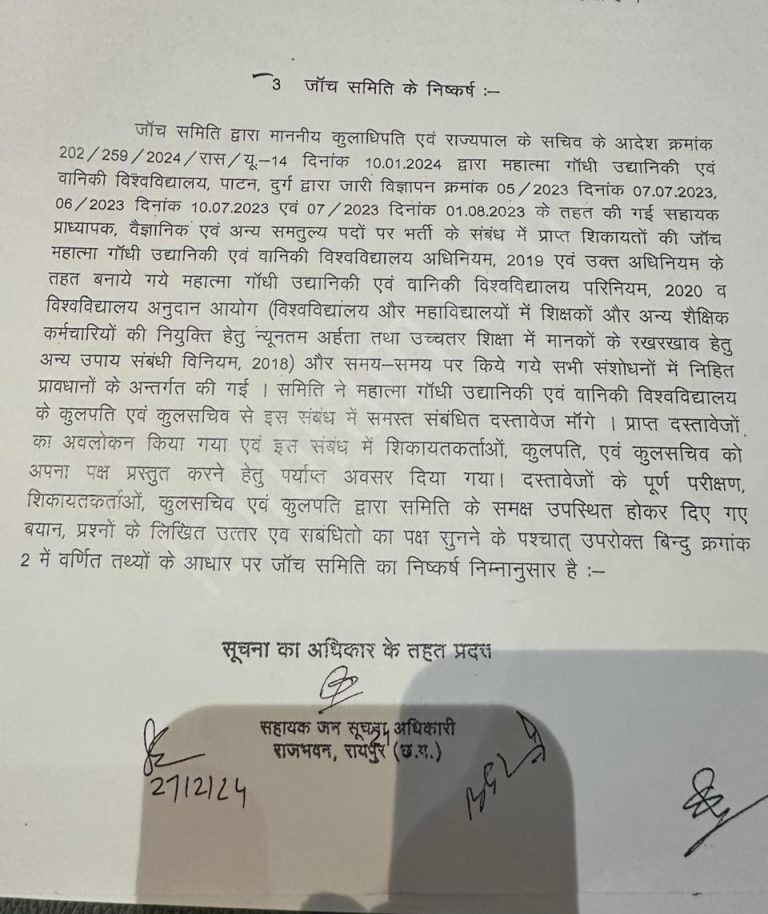 3 जॉच समिति के निष्कर्ष :–
जॉच समिति द्वारा माननीय कुलाधिपति एवं राज्यपाल के सचिव के आदेश क्रमांक
202/259/2024/रास/यू.–14 दिनांक 10.01.2024 द्वारा महात्मा गॉधी उद्यानिकी एवं
वानिकी विश्वविद्यालय, पाटन, दुर्ग द्वारा जारी विज्ञापन क्रमांक 05/2023 दिनांक 07.07.2023,
06/2023 दिनांक 10.07.2023 एवं 07/2023 दिनांक 01.08.2023 के तहत की गई सहायक
प्राध्यापक, वैज्ञानिक एवं अन्य समतुल्य पदों पर भर्ती के संबंध में प्राप्त शिकायतों की जॉच
महात्मा गॉधी उद्यानिकी एवं वानिकी विश्वविद्यालय अधिनियम, 2019 एवं उक्त अधिनियम के
तहत बनाये गये महात्मा गॉधी उद्यानिकी एवं वानिकी विश्वविद्यालय परिनियम, 2020 व
विश्वविद्यालय अनुदान आयोग (विश्वविद्यालय और महाविद्यालयों में शिक्षकों और अन्य शैक्षिक
कर्मचारियों की नियुक्ति हेतु न्यूनतम अर्हता तथा उच्चतर शिक्षा में मानकों के रखरखाव हेतु
अन्य उपाय संबंधी विनियम, 2018) और समय–समय पर किये गये सभी संशोधनों में निहित
प्रावधानों के अन्तर्गत की गई । समिति ने महात्मा गॉधी उद्यानिकी एवं वानिकी विश्वविद्यालय
के कुलपति एवं कुलसचिव से इस संबंध में समस्त संबंधित दस्तावेज मॉगे । प्राप्त दस्तावेजों
का अवलोकन किया गया एवं इस संबंध में शिकायतकर्ताओं, कुलपति, एवं कुलसचिव को
अपना पक्ष प्रस्तुत करने हेतु पर्याप्त अवसर दिया गया। दस्तावेजों के पूर्ण परीक्षण,
शिकायतकर्ताओं, कुलसचिव एवं कुलपति द्वारा समिति के समक्ष उपस्थित होकर दिए गए
बयान, प्रश्नों के लिखित उत्तर एव सबंधितो का पक्ष सुनने के पश्चात् उपरोक्त बिन्दु क्रमांक
2 में वर्णित तथ्यों के आधार पर जॉच समिति का निष्कर्ष निम्नानुसार है :–
सूचना का अधिकार के तहत प्रदत्त
सहायक जन सूचना अधिकारी
राजभवन, रायपुर (छ.ग.)
27/2/24